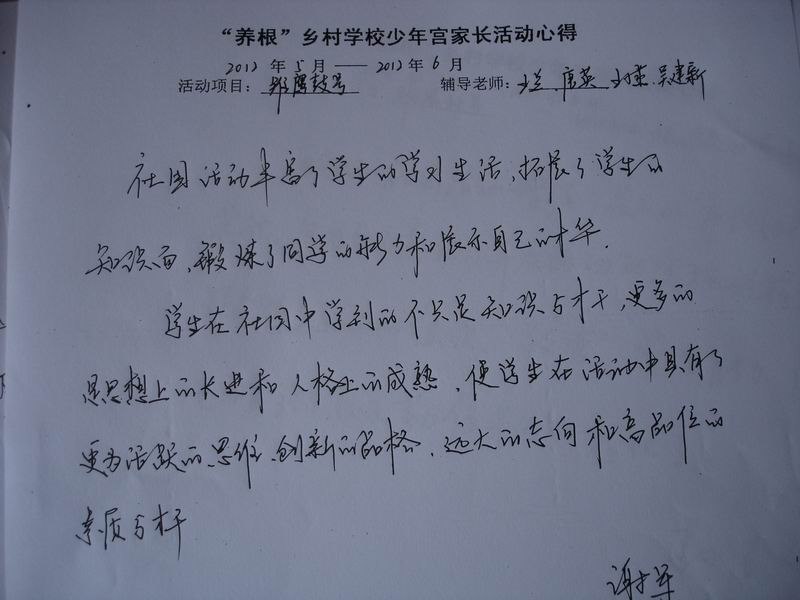 “养根”乡村学校少年宫家长活动心得
2012 年 5 月 —— 2012 年 6 月
活动项目： 鼓号 辅导老师： 唐英 吴建新
社团活动丰富了学生的学习生活，拓展了学生的
知识面，锻炼了同学的能力和展示自己的才华．
学生在社团中学到的不只是知识与才干，更多的
是思想上的长进和人格上的成熟．使学生在活动中具有了
更为活跃的思维、创新的品格，远大的志向和高品位的
素质与才干
谢